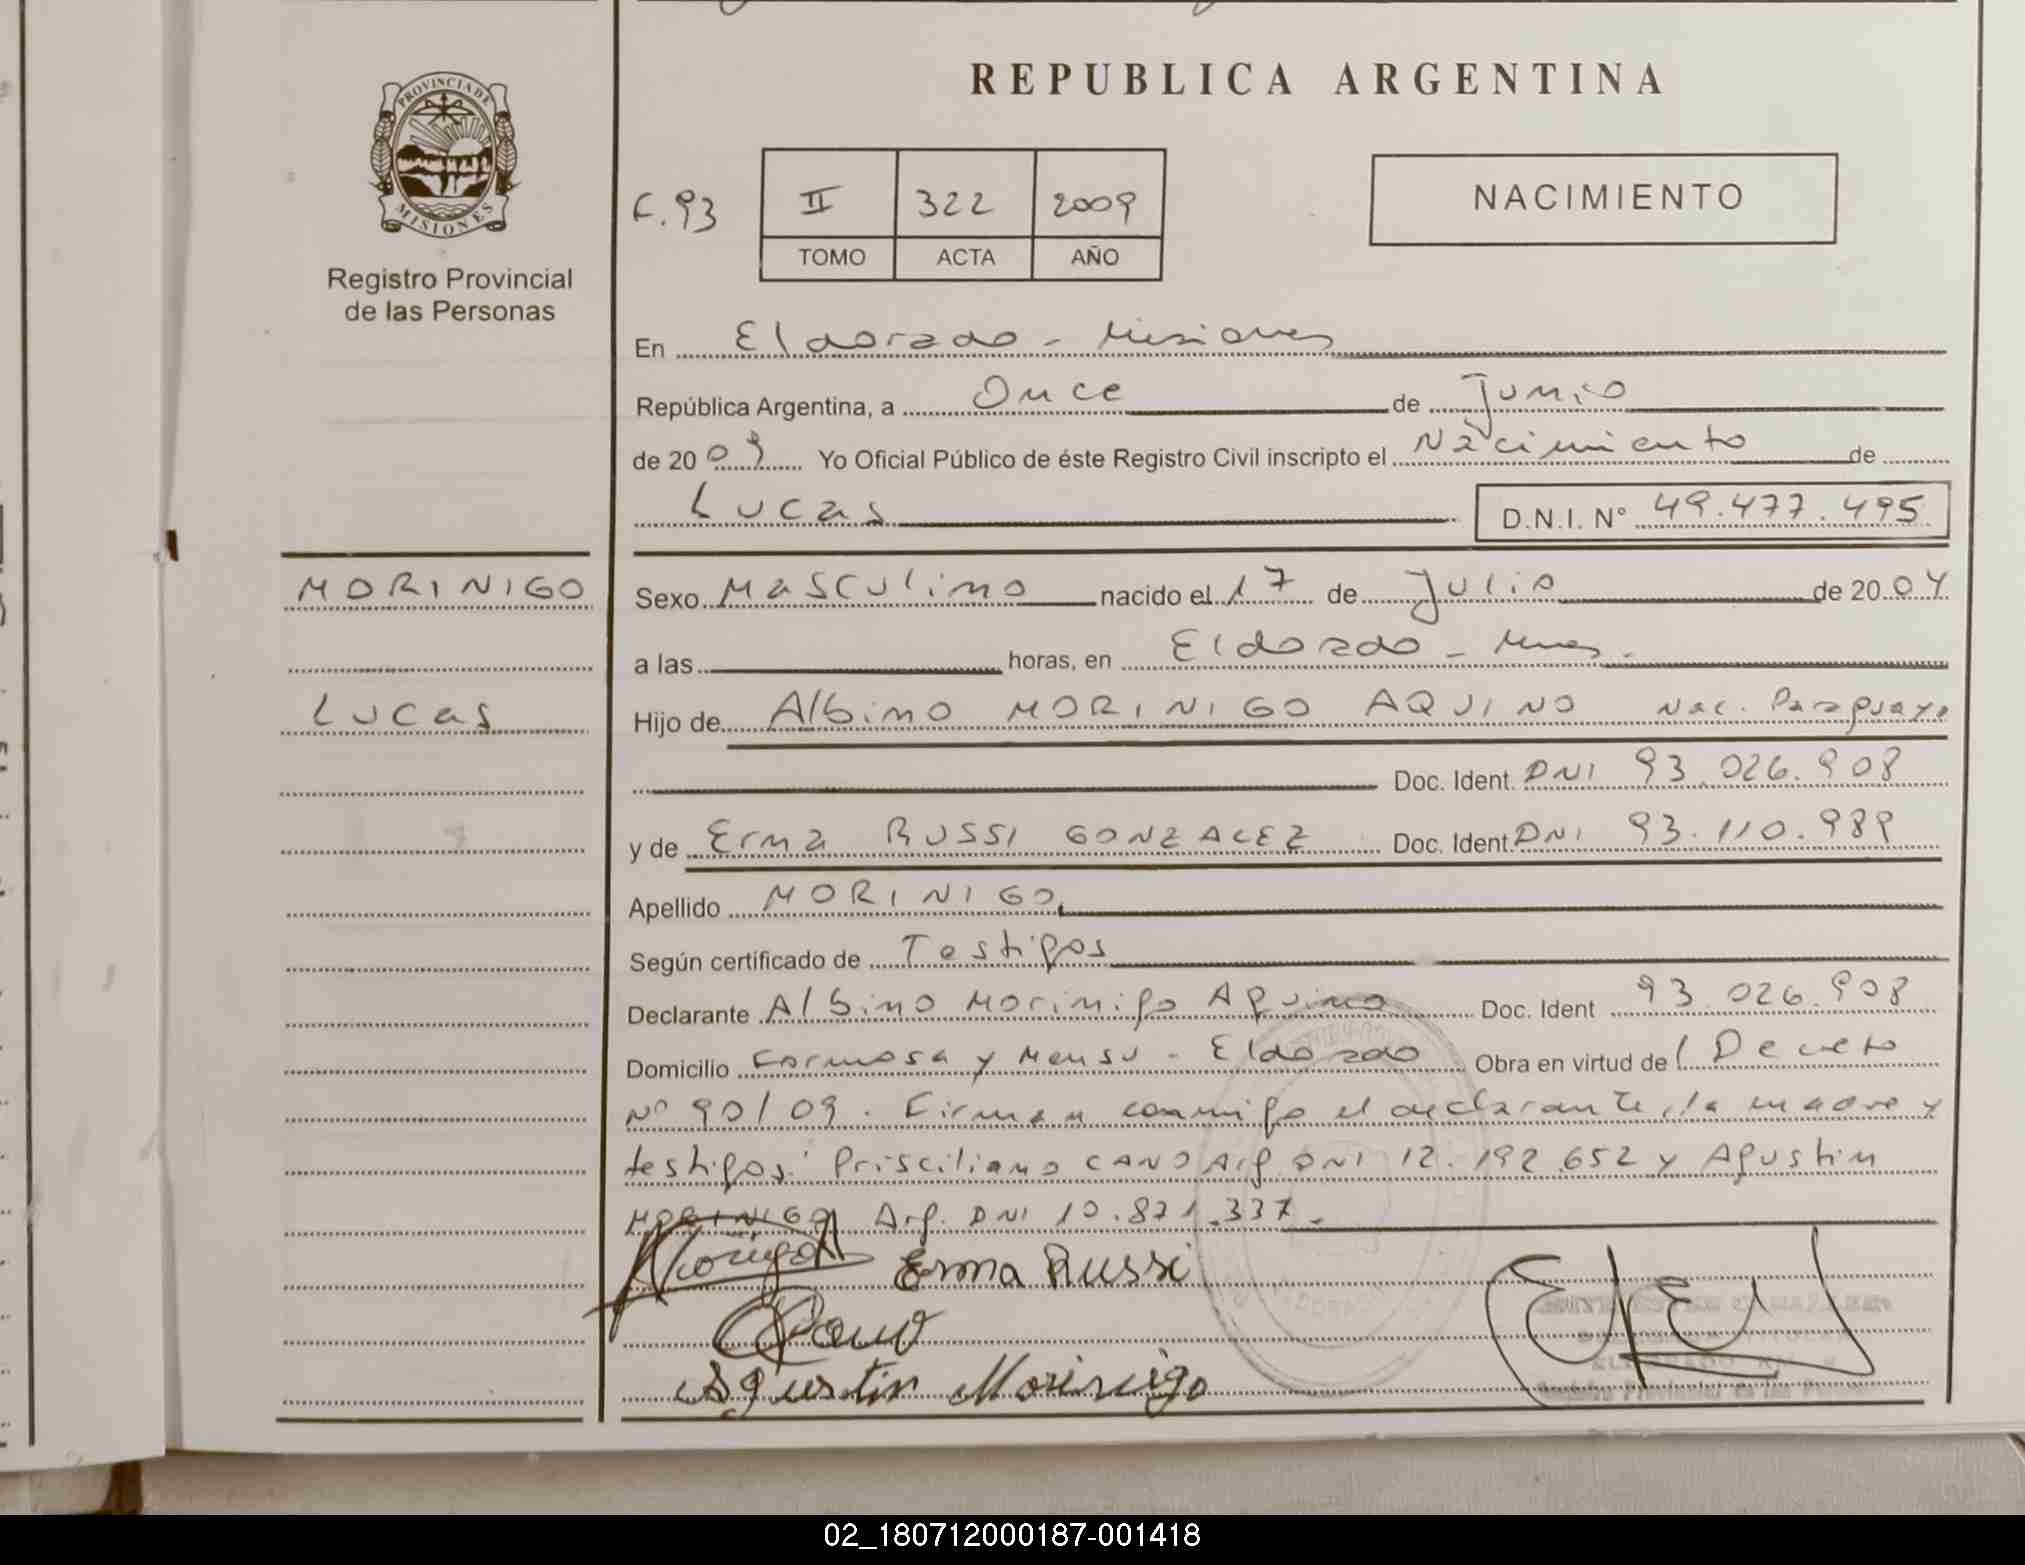 REPUBLICA ARGENTINA
PROVINCIA DE
MISIONES
Registro Provincial
de las Personas
F. 93
II 322 2009
TOMO ACTA AÑO
NACIMIENTO
En Eldorado - Misiones
República Argentina, a Once de Junio
de 2009 Yo Oficial Público de éste Registro Civil inscripto el Nacimiento de
Lucas D.N.I. N° 49.477.495
MORINIGO
Lucas
Sexo Masculino nacido el 17 de Julio de 2004
a las horas, en Eldorado - Mnes.
Hijo de Albino MORINIGO AQUINO Nac. Paraguayo
Doc. Ident. DNI 93.026.908
y de Erma RUSSI GONZALEZ Doc. Ident DNI 93.110.989
Apellido MORINIGO
Según certificado de Testigos
Declarante Albino Morinigo Aquino Doc. Ident 93.026.908
Domicilio Formosa y Mensu - Eldorado Obra en virtud del Decreto
N° 90/09. Firman conmigo el declarante, la madre y
testigos: Prisciliano CANO Arg DNI 12.192.652 y Agustin
MORINIGO Arg. DNI 10.821.337.
Erma Russi
Cano
Agustin Morinigo
02_180712000187-001418